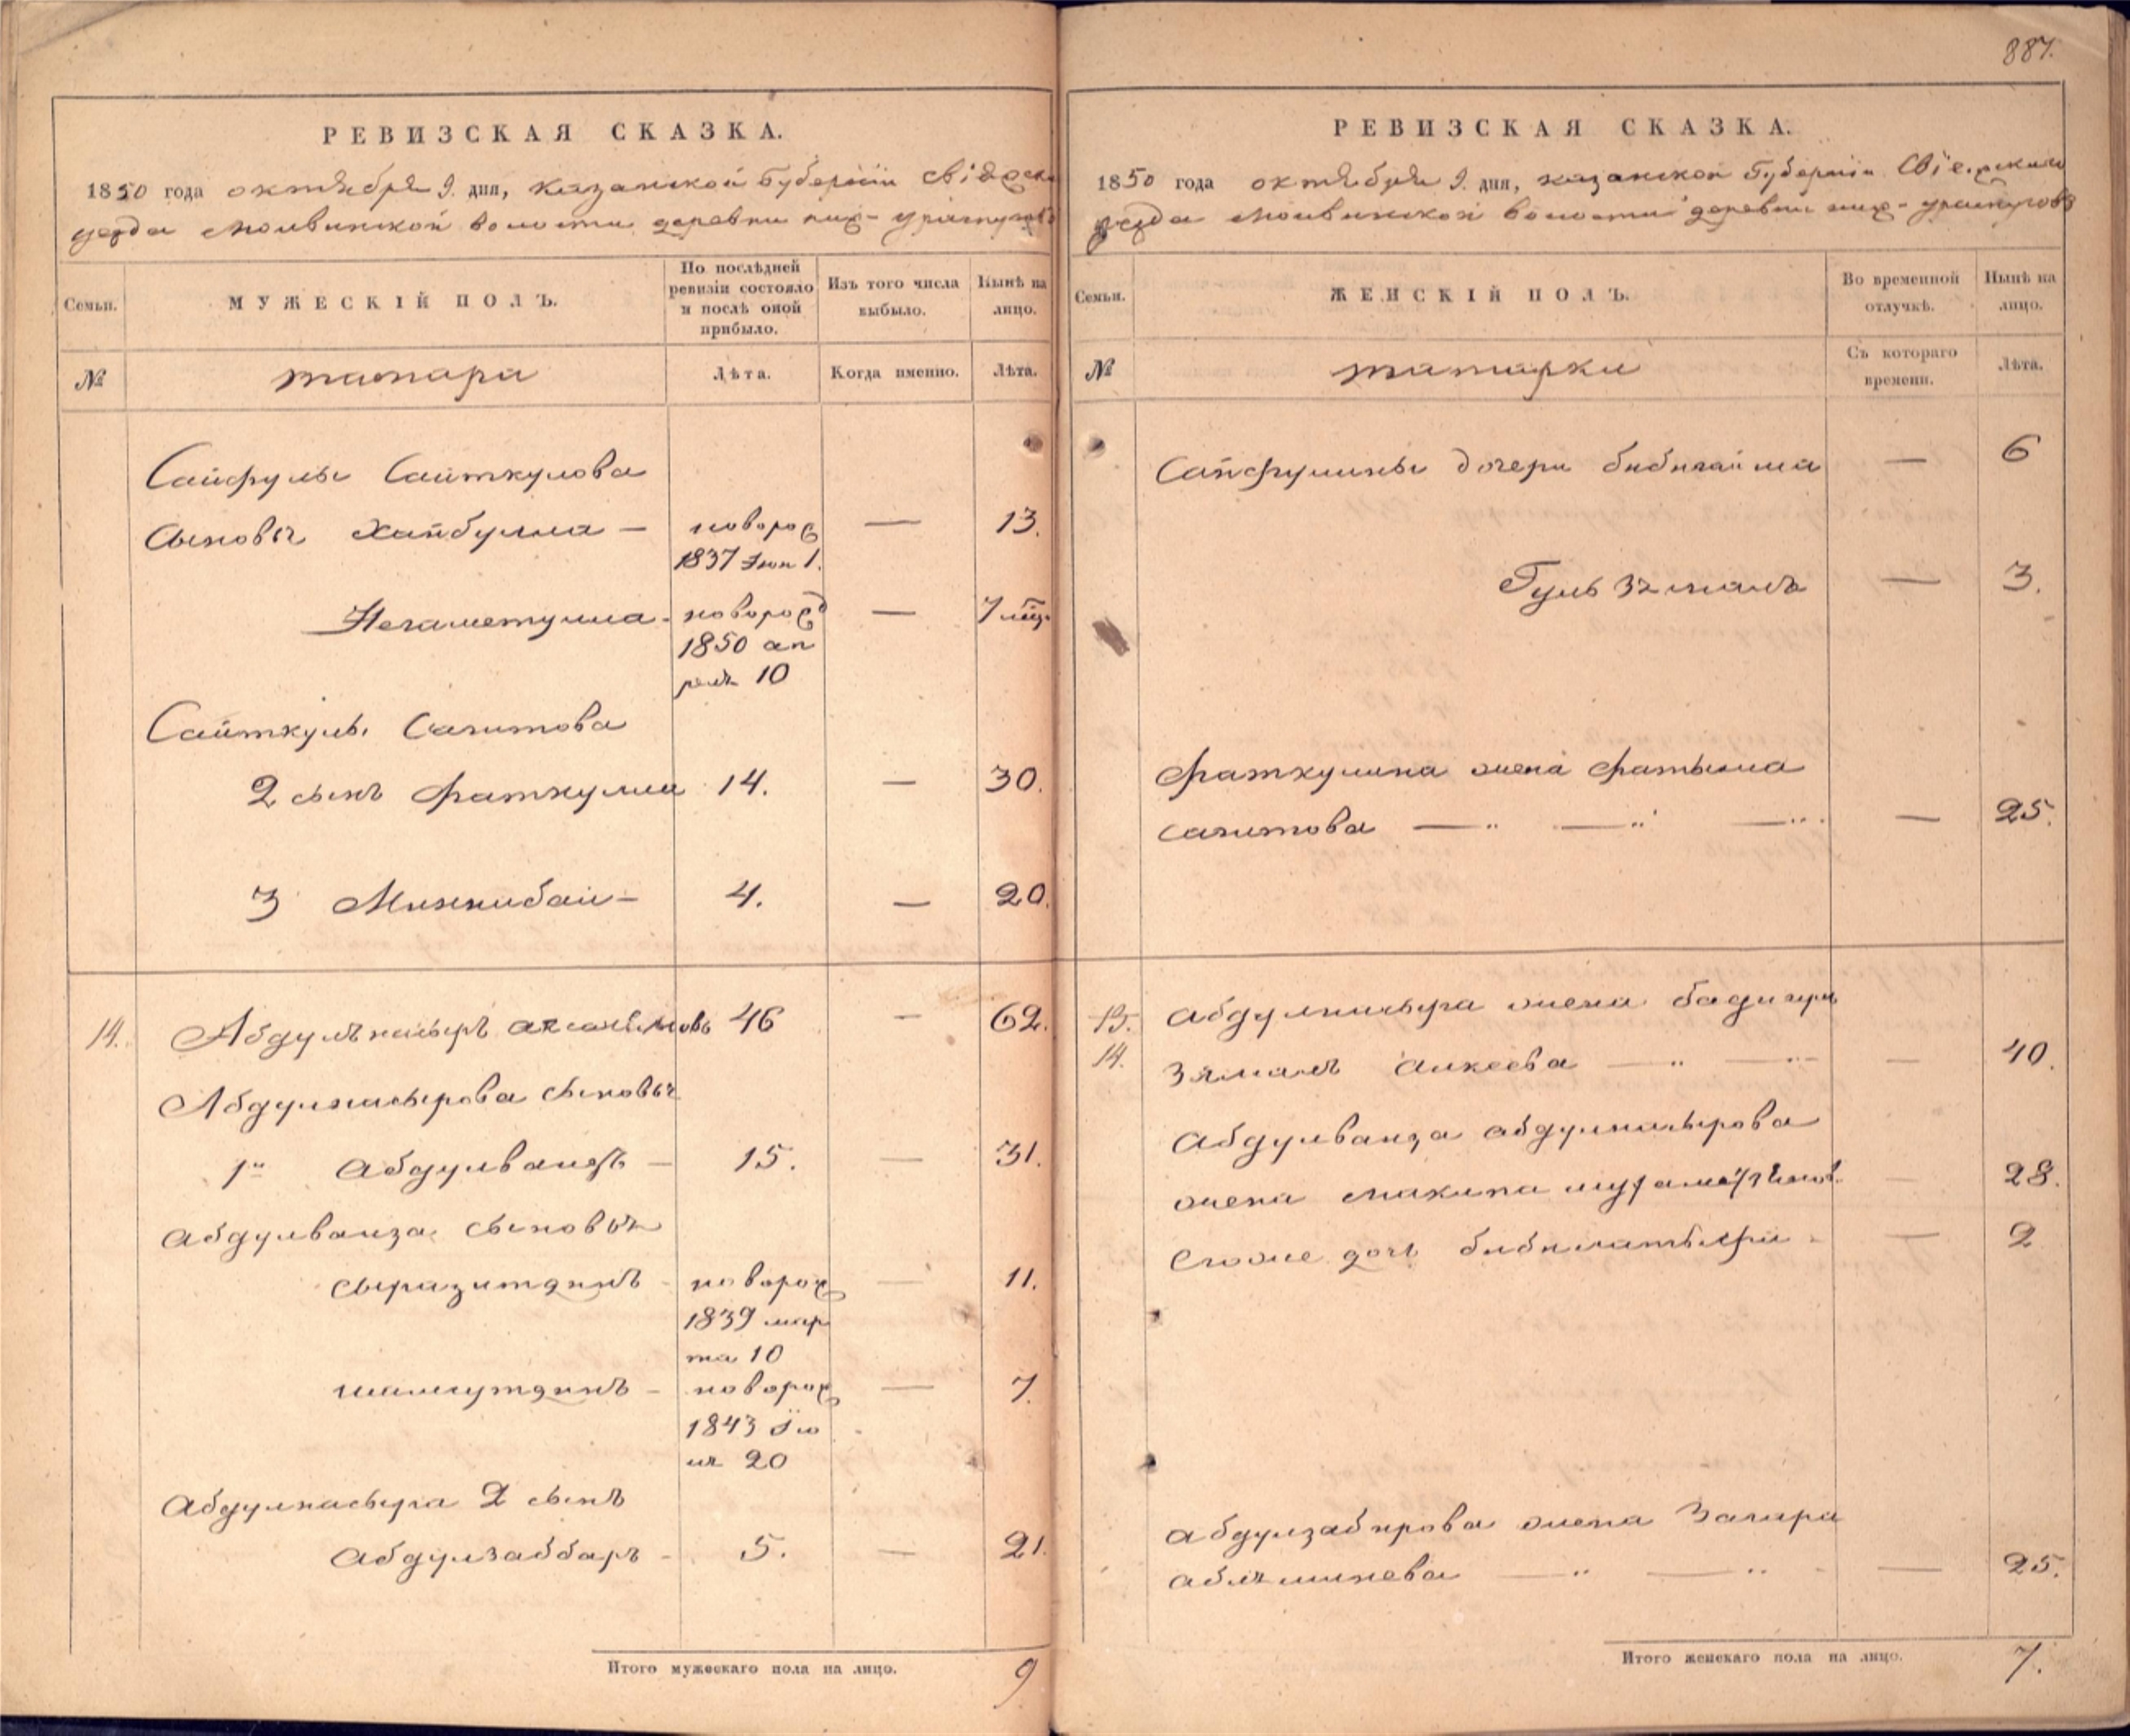 887.
РЕВИЗСКАЯ СКАЗКА.
1850 года октября 9. дня, казанской Губернiи
уезда волости деревни
Семьи.
МУЖЕСКІЙ ПОЛЪ.
По послѣдней ревизіи состояло и послѣ оной прибыло.
Изъ того числа выбыло.
Нынѣ на лицо.
№
татара
Лѣта.
Когда именно.
Лѣта.
Сайфулы Сайткулова
Сыновья Хайбулла — новорож — 13.
1837 Iюн 1.
Негаметулла - новорожд — 7 мѣц.
1850 ап
реля 10
Сайткулы Сагитова
2 сынъ Фаткулла 14. — 30.
3 Миннибай — 4. — 20.
14. 46 — 62.
Абдулнасырова сыновья
1й — 15. — 31.
Абдулваиза сыновья
Сыразитдинъ - новорож — 11.
1839 мар
та 10
шамсутдинъ - новорож — 7.
1843 Iю
ля 20
Абдулнасыра 2 сынъ
Абдулзаббаръ - 5. — 21.
Итого мужескаго пола на лицо. 9
РЕВИЗСКАЯ СКАЗКА.
1850 года октября 9. дня, казанской Губернiи
уезда волости деревни
Семьи.
ЖЕНСКІЙ ПОЛЪ.
Во временной отлучкѣ.
Нынѣ на лицо.
№
татарки
Съ котораго времени.
Лѣта.
Сайфулины дочери — 6
Гуль зямаль — 3.
Фаткулина жена Фатыма
Сагитова — " — " — " . — 25.
15. Абдулнасыра жена
14. Зямаль Аикеева — " — " — 40.
Абдулваиза абдулнасырова
жена — 28.
дочь — 2
Абдулзабирова жена Загира
— " — " - — 25.
Итого женскаго пола на лицо. 7.